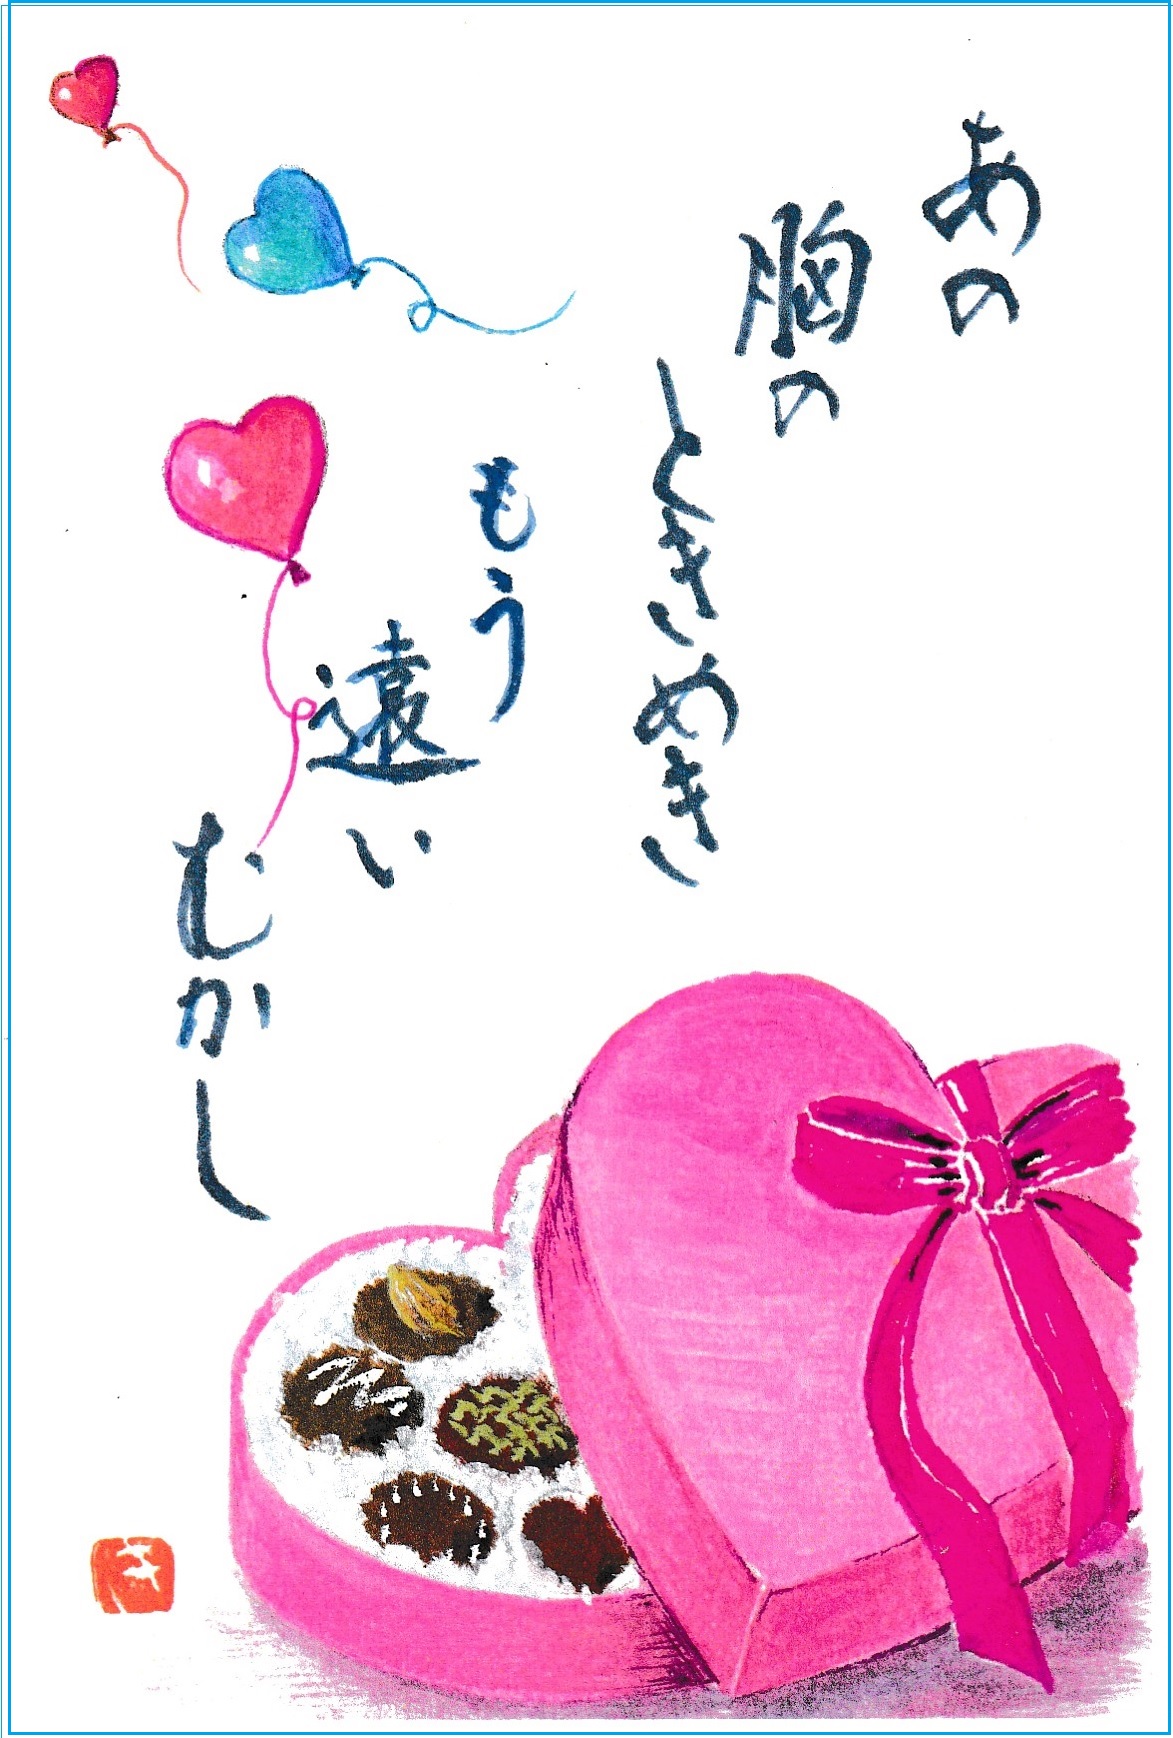 あの
胸の
ときめき
もう
遠い
むかし